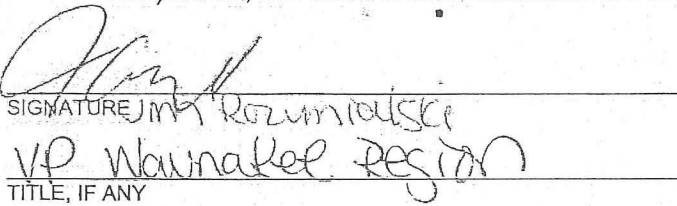 SIGNATURE Jim Rozumialski
VP Waunakee Region
TITLE, IF ANY